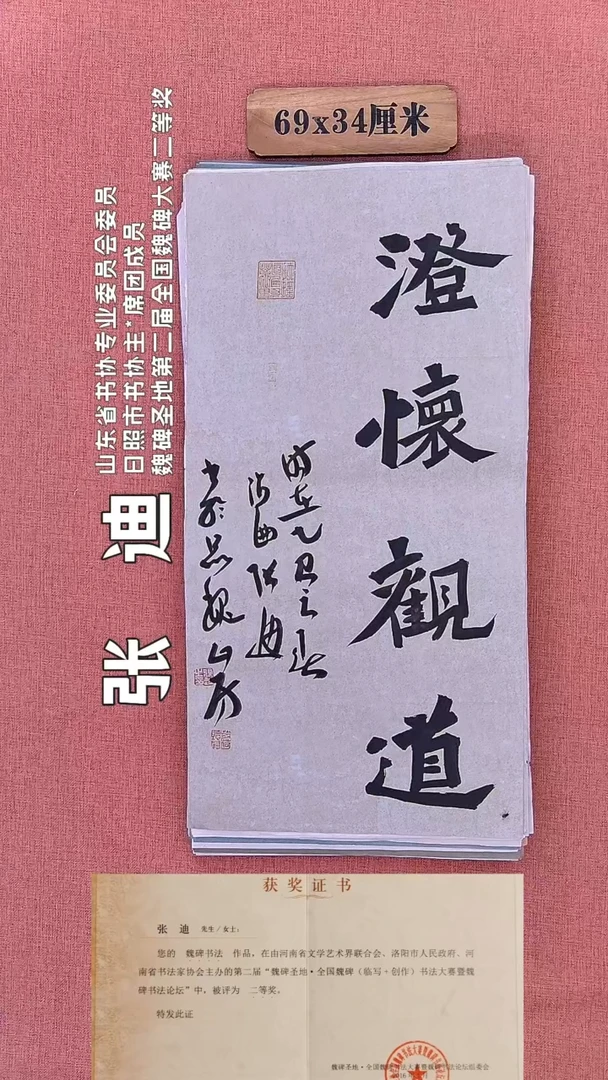 69x34厘米
澄懷觀道
时在乙巳之春
海曲张迪
书于品魏山房
山东省书协专业委员会委员
日照市书协主*席团成员
魏碑圣地第二届全国魏碑大赛二等奖
张 迪
获奖证书
张 迪 先生/女士：
您的 魏碑书法 作品，在由河南省文学艺术界联合会、洛阳市人民政府、河
南省书法家协会主办的第二届“魏碑圣地·全国魏碑（临写+创作）书法大赛暨魏
碑书法论坛”中，被评为 二等奖。
特发此证
魏碑圣地·全国魏碑书法大赛暨魏碑书法论坛组委会